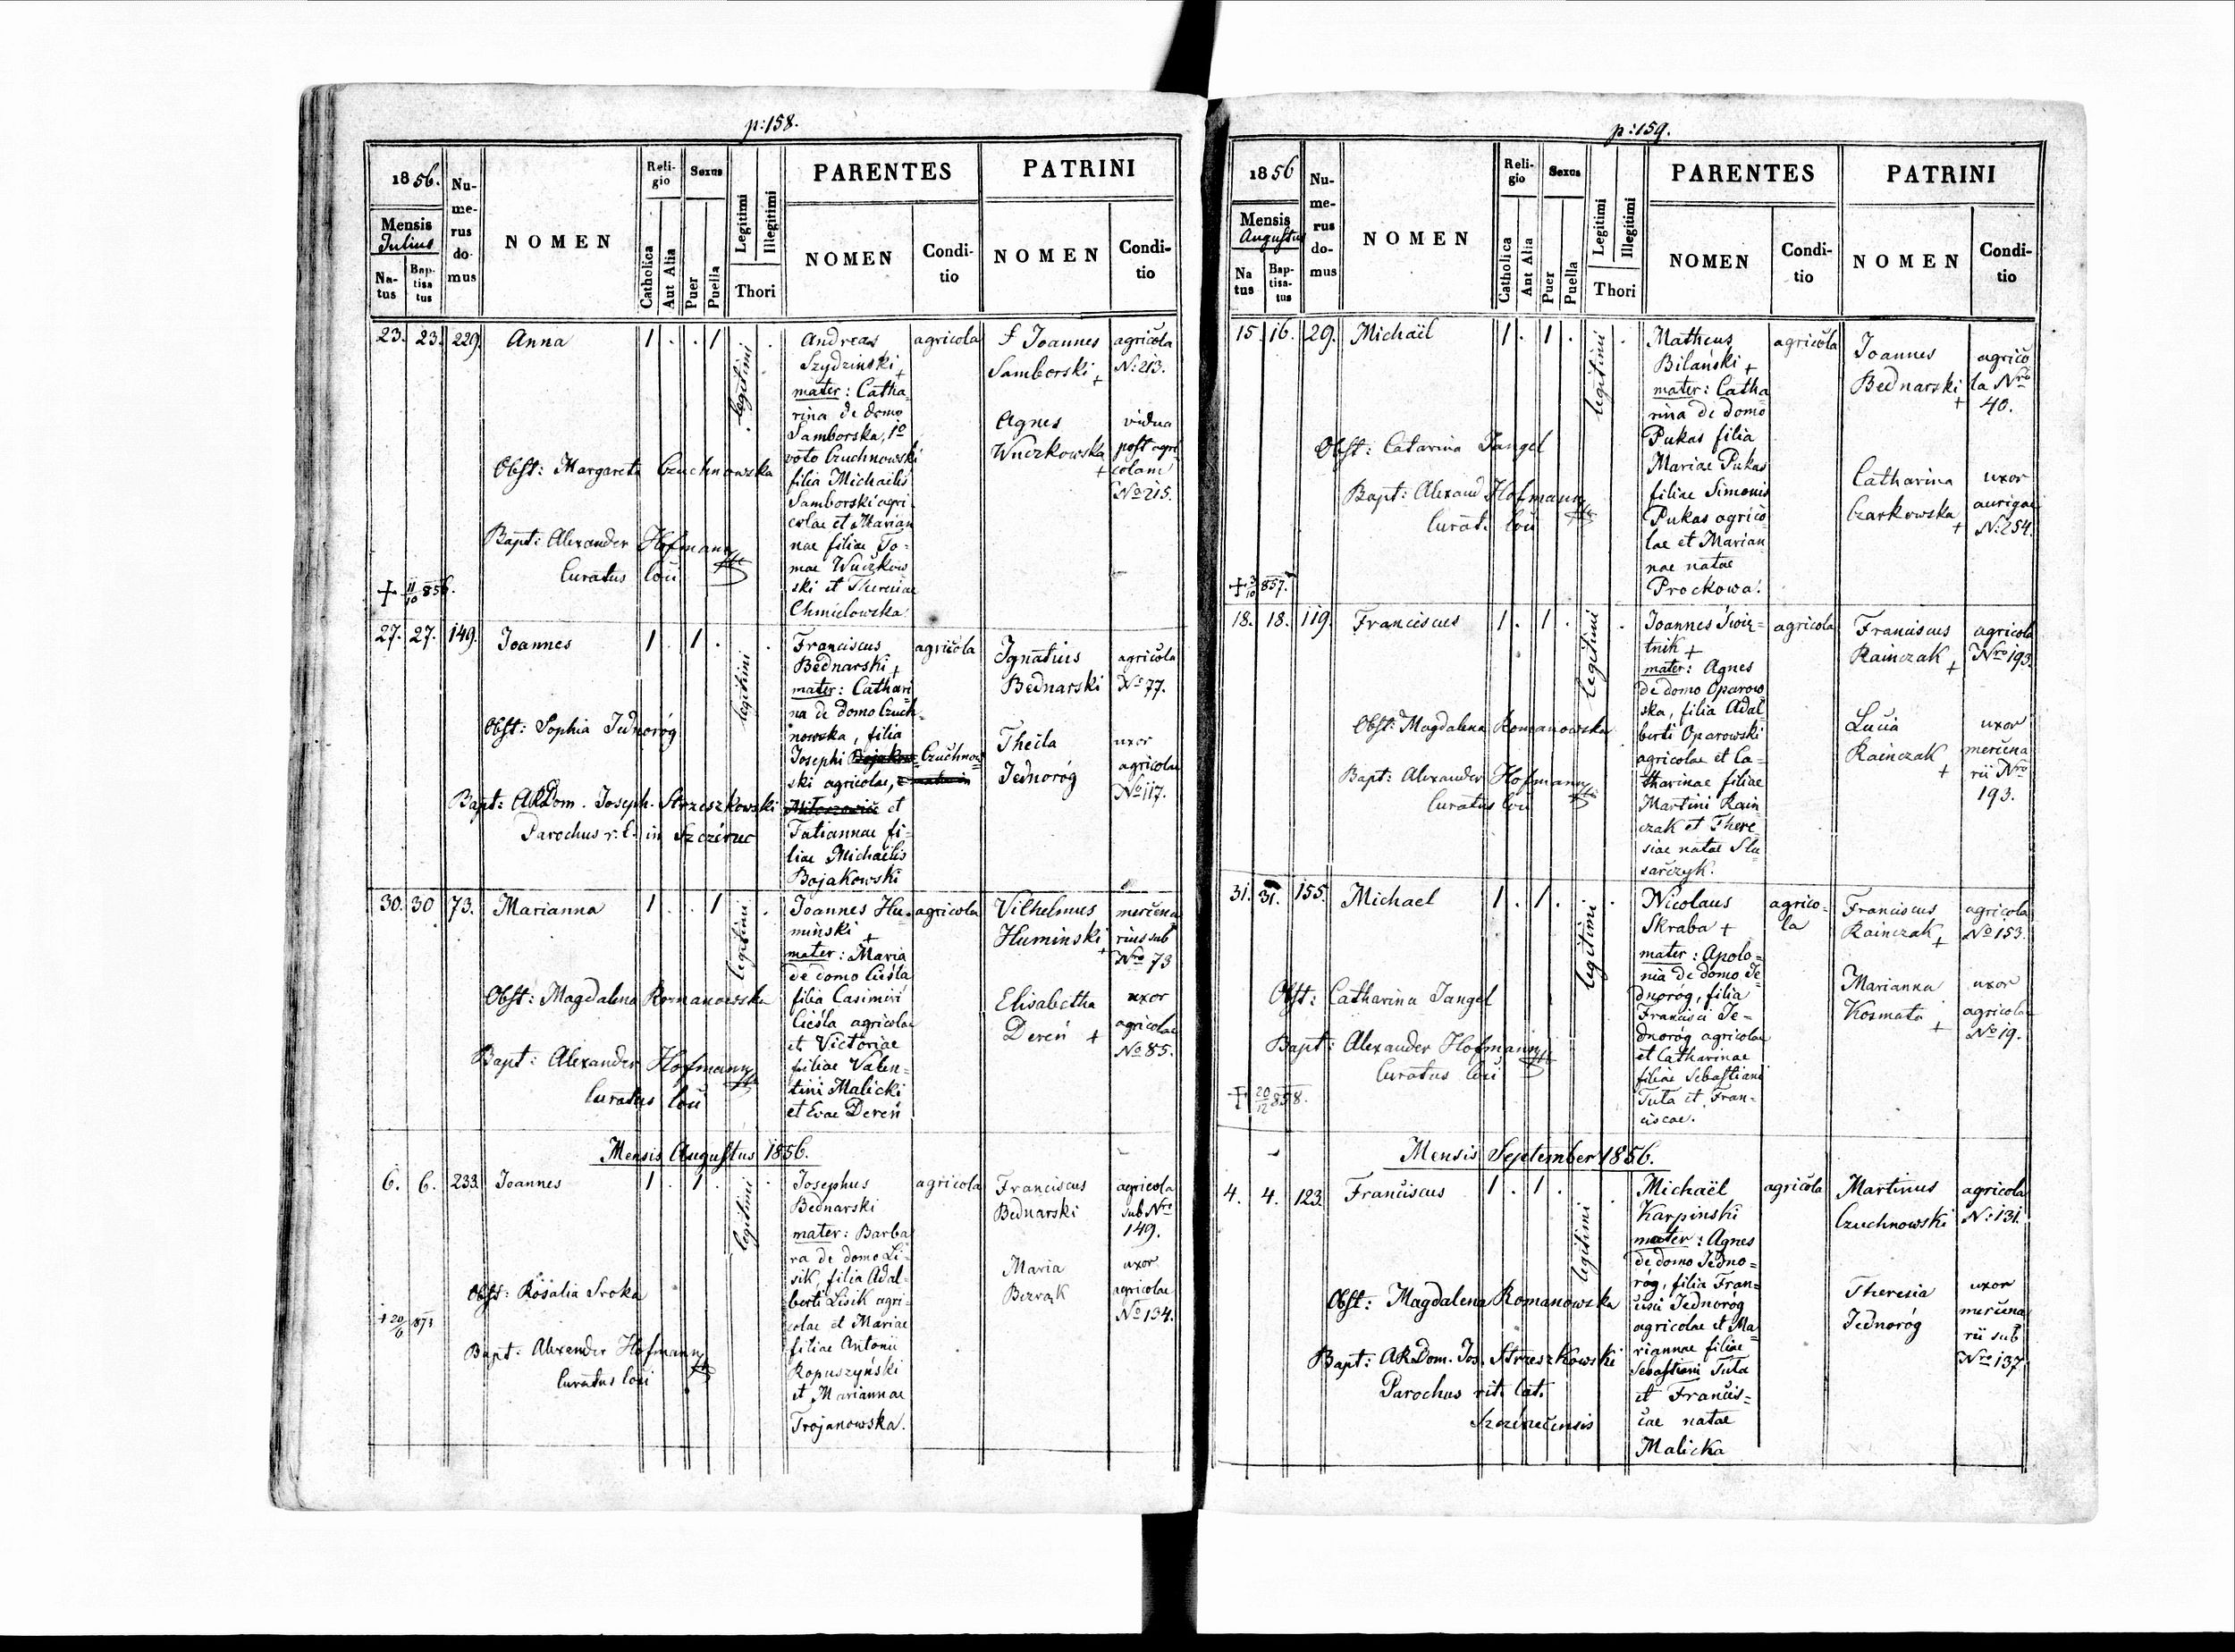 p: 158.
1856.
Mensis
Julius
Na-
tus
Bap-
tisa
tus
Nu-
me-
rus
do-
mus
NOMEN
Reli-
gio
Catholica
Aut Alia
Sexus
Puer
Puella
Legitimi
Illegitimi
Thori
PARENTES
NOMEN
Condi-
tio
PATRINI
NOMEN
Condi-
tio
23. 23. 229. Anna 1 . . 1 legitimi .
Obst: Margareta Czuchnowska
Bapt: Alexander Hofmann
Curatus loci
+ 11/10 856.
Andreas
Szydzinski +
mater: Catha
rina de domo
Samborska, 1o
voto Czuchnowski
filia Michaëlis
Samborski agri
colae et Marian
nae filiae To=
mae Wuczkow
ski et Theresiae
Chmielowska.
agricola
f Joannes
Samborski +
agricola
N: 213.
Agnes
Wuczkowska
+
vidua
post agri
colam
No 215.
27. 27. 149. Joannes 1 . 1 . legitimi .
Obst: Sophia Jednoróg
Bapt: ARDom. Joseph. Strzeszkowski
Parochus r. l. in Szczérzec
Franciscus
Bednarski +
mater: Cathari
na de domo Czuch=
nowska, filia
Josephi Czuchnow
ski agricolae,
et
Tatiannae fi=
liae Michaëlis
Bojakowski
agricola
Ignatius
Bednarski
agricola
No 77.
Thecla
Jednoróg
uxor
agricolae
No 117.
30. 30 73. Marianna 1 . . 1 legitimi .
Obst: Magdalena Romanowska
Bapt: Alexander Hofmann
Curatus loci
Joannes Hu=
minski +
mater: Maria
de domo Cieśla
filia Casimiri
Cieśla agricolae
et Victoriae
filiae Valen=
tini Malicki
et Evae Dereń
agricola
Vilhelmus
Huminski +
mercena
rius sub
Nro 73
Elisabetha
Dereń +
uxor
agricolae
No 85.
Mensis Augustus 1856.
6. 6. 233. Joannes 1 . 1 . legitimi .
Obst: Rosalia Sroka
Bapt: Alexander Hofmann
Curatus loci
Josephus
Bednarski
mater: Barba
ra de domo Li=
sik, filia Adal=
berti Lisik agri=
colae et Mariae
filiae Antonii
Kopuszyński
et Mariannae
Trojanowska.
agricola
Franciscus
Bednarski
agricola
sub Nro
149.
Maria
uxor
agricolae
No 134.
p: 159.
1856
Mensis
Augustus
Na
tus
Bap-
tisa-
tus
Nu-
me-
rus
do-
mus
NOMEN
Reli-
gio
Catholica
Aut Alia
Sexus
Puer
Puella
Legitimi
Illegitimi
Thori
PARENTES
NOMEN
Condi-
tio
PATRINI
NOMEN
Condi-
tio
15. 16. 29. Michaël 1 . 1 . legitimi .
Obst: Catarina Jangel
Bapt: Alexand Hofmann
Curat. loci
+ 3/10 857.
Matheus
Bilański +
mater: Catha
rina de domo
Pukas filia
Mariae Pukas
filiae Simonis
Pukas agrico
lae et Marian
nae natae
Prockowa.
agricola
Joannes
Bednarski
+
agrico
la Nro
40.
Catharina
Czarkowska
+
uxor
aurigae
N: 254.
18. 18. 119. Franciscus 1 . 1 . legitimi .
Obst: Magdalena Romanowska
Bapt: Alexander Hofmann
Curatus loci
Joannes Świr=
tnik +
mater: Agnes
de domo Oparow
ska, filia Adal
berti Oparowski
agricolae et Ca=
tharinae filiae
Martini Rain
czak et There
siae natae Slu
sarczyk.
agricola
Franciscus
Rainczak +
agricola
Nro 193.
Lucia
Rainczak
+
uxor
mercena
rii Nro
193.
31. 31. 155. Michael 1 . 1 . legitimi .
Obst: Catharina Jangel
Bapt: Alexander Hofmann
Curatus loci
+ 20/12 858.
Nicolaus
Skraba +
mater: Apolo=
nia de domo Je
dnoróg, filia
Francisci Je=
dnoróg agricolae
et Catharinae
filiae Sebastiani
Tuta et Fran=
ciscae.
agrico=
la
Franciscus
Rainczak +
agricola
No 153.
Marianna
Kosmata +
uxor
agricolae
No 19.
Mensis September 1856.
4. 4. 123. Franciscus 1 . 1 . legitimi .
Obst: Magdalena Romanowska
Bapt: ARDom. Jos. Strzeszkowski
Parochus rit. lat.
Szczérzecensis
Michaël
Karpinski
mater: Agnes
de domo Jedno=
róg, filia Fran=
cisci Jednoróg
agricolae et Ma
riannae filiae
Sebastiani Tuta
et Francis=
cae natae
Malicka
agricola
Martinus
Czuchnowski
agricola
N: 131.
Theresia
Jednoróg
uxor
mercena
rii sub
Nro 137.